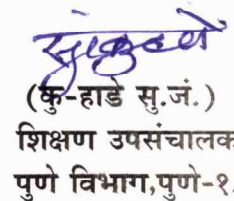 (कु-हाडे सु.जं.)
शिक्षण उपसंचालक
पुणे विभाग,पुणे-१.